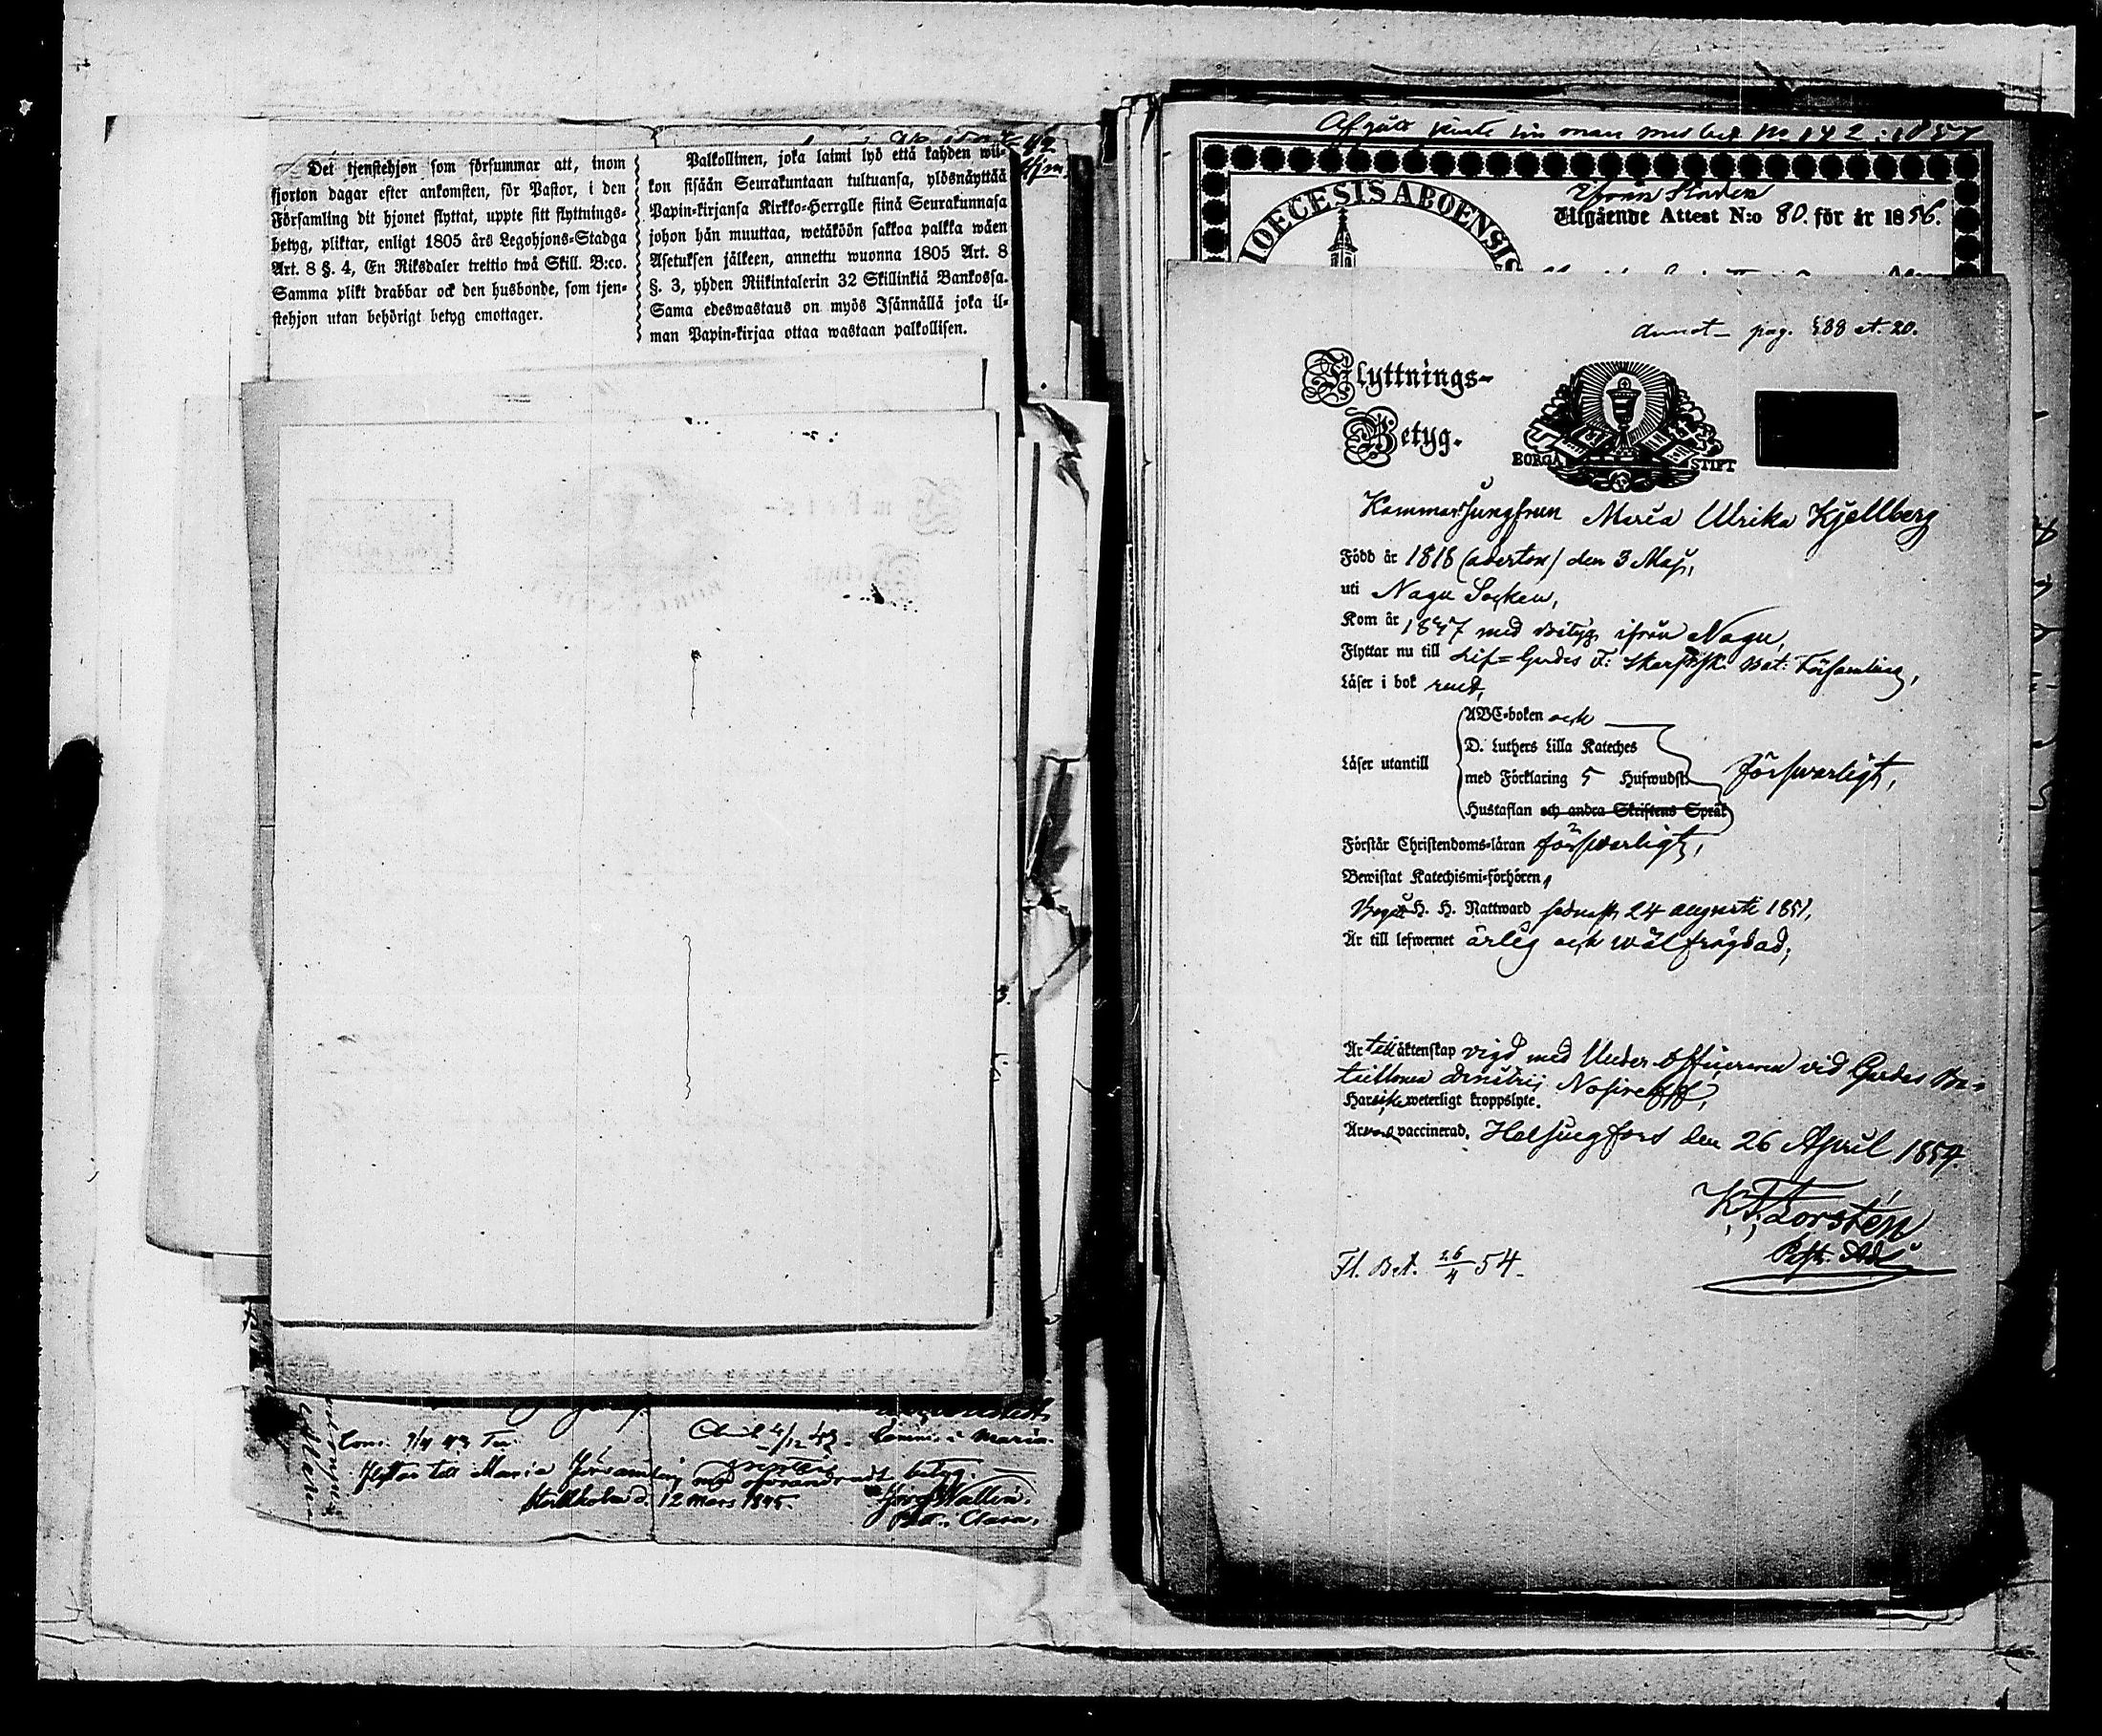 Det tjenstehjon som försummar att, inom
fjorton dagar efter ankomsten, för Pastor, i den
Församling dit hjonet flyttat, uppte sitt flyttnings-
betyg, pliktar, enligt 1805 års Legohjons-Stadga
Art. 8 §. 4, En Riksdaler trettio twå Skill. B:co.
Samma plikt drabbar ock den husbonde, som tjen-
stehjon utan behörigt betyg emottager.
Palkollinen, joka laimi lyö että kahden wii-
kon sisään Seurakuntaan tultuansa, ylösnäyttää
Papin-kirjansa Kirkko-Herralle siinä Seurakunnasa
johon hän muuttaa, wetäköön sakkoa palkka wäen
Asetuksen jälkeen, annettu wuonna 1805 Art. 8
§. 3, yhden Riikintalerin 32 Skillinkiä Bankossa.
Sama edeswastaus on myös Isännällä joka il-
man Papin-kirjaa ottaa wastaan palkollisen.
Flyttar till Maria Församling med oförändradt betyg.
Stockholm d. 12 Mars 1845.
Clara.
Afgått jemte sin man med bet. No 142: 1857
DIOECESIS ABOENSIS
Från Staden
Utgående Attest N:o 80. för år 1856.
Annot. pag. 588 et. 20.
Flyttnings-
Betyg.
BORGÅ STIFT
KammarJungfrun Maria Ulrika Kjellberg
Född år 1818 (aderton) den 3 Maj,
uti Nagu Socken,
Kom år 1847 med Betyg ifrån Nagu,
Flyttar nu till Lif-Gardes F: Skarpsk. Bat: Församling,
Läser i bok rent,
Läser utantill
ABC-boken och
D. Luthers Lilla Kateches
med Förklaring 5 Hufwudst.
Hustaflan och andra Skriftens Språk
försvarligt,
Förstår Christendoms-läran försvarligt,
Bewistat Katechismi-förhören,
Begått H. H. Nattward sednast 24 augusti 1851,
Är till lefwernet ärlig och wälfrägdad,
Är till äktenskap vigd med Under-officeren vid Gardes Ba-
taillonen Dmitrij Nosireff,
Har icke weterligt kroppslyte.
Är vaccinerad. Helsingfors den 26 April 1854.
K. F. Forstén
Past. Adj.
Fl. Bet. 26/4 54.